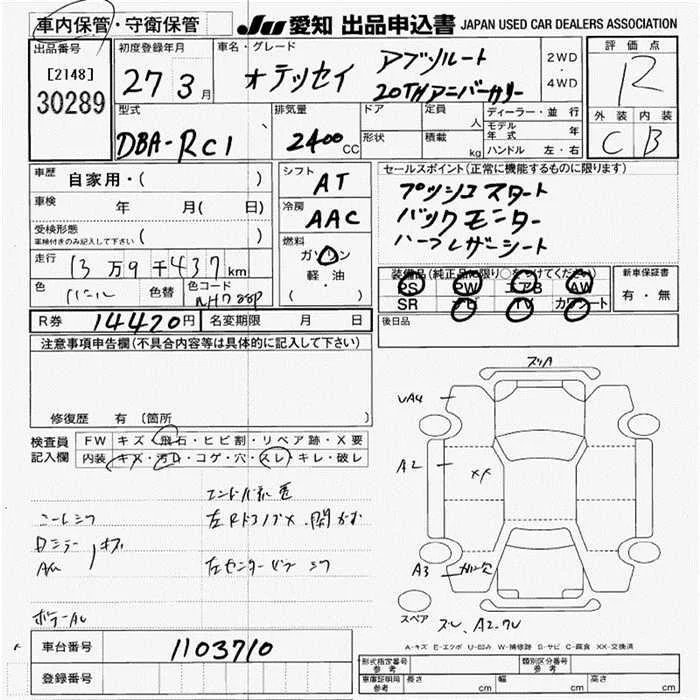 車内保管・守衛保管
JU 愛知 出品申込書 JAPAN USED CAR DEALERS ASSOCIATION
出品番号
[2148]
30289
初度登録年月
27 3月
車名・グレード
オデッセイ アブソルート
20THアニバーサリー
2WD
・
4WD
評価点
R
外装 内装
C B
型式
DBA-RC1
排気量
2400 CC
ドア
形状
定員 人
積載 kg
ディーラー・並行
モデル年式 年
ハンドル 左・右
車歴 自家用・( )
車検 年 月( 日)
受検形態
車検付きのみ記入して下さい ( )
走行 13万9千437km
色 パール 色替 色コード NH788P
シフト
AT
冷房
AAC
燃料
ガソリン
軽・油
( ・ )
セールスポイント(正常に機能するものに限ります)
プッシュスタート
バックモニター
ハーフレザーシート
装備品(純正品に限り○をつけてください)
PS PW エアB AW
SR ナビ TV カワシート
新車保証書
有・無
後日品
R券 14420円 名変期限 月 日
注意事項申告欄(不具合内容等は具体的に記入して下さい)
修復歴 有 (箇所
検査員
記入欄
FW キズ・飛石・ヒビ割・リペア跡・X要
内装 キズ・汚れ・コゲ・穴・スレ・キレ・破レ
左センターピラー
スリA
A2
XX
A3
スペア
スレ、A2.
A-キズ E-エクボ U-凹み W-補修跡 S-サビ C-腐食 XX-交換済
車台番号 1103710
登録番号
形式指定番号
参考
類別区分番号
参考
車庫証明用
参考
長さ cm 幅 cm 高さ cm